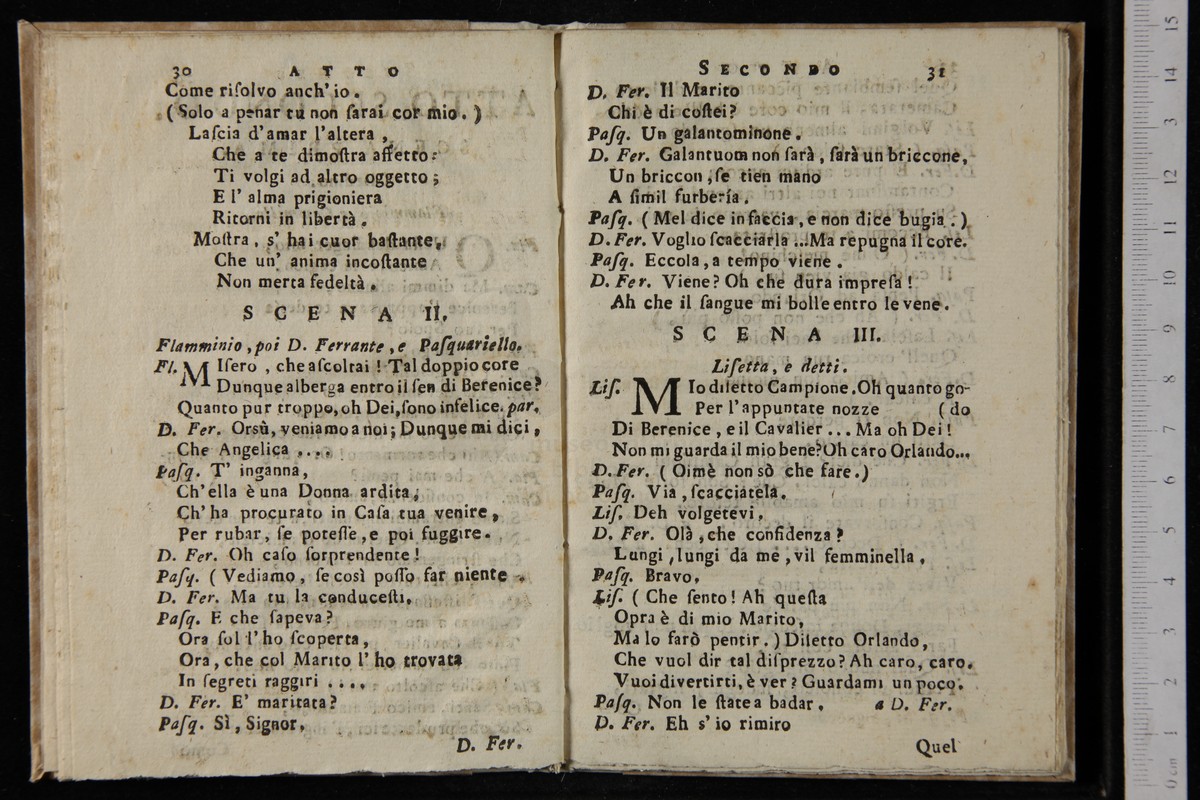 30 ATTO
Come riſolvo anch' io.
( Solo a penar tu non ſarai cor mio. )
Laſcia d'amar l'altera,
Che a te dimoſtra affetto:
Ti volgi ad altro oggetto;
E l' alma prigioniera
Ritorni in libertà.
Moſtra, s' hai cuor baſtante,
Che un' anima incoſtante
Non merta fedeltà.
SCENA II.
Flamminio, poi D. Ferrante, e Paſquariello.
Fl. MIſero, che aſcoltai! Tal doppio core
Dunque alberga entro il ſen di Berenice?
Quanto pur troppo, oh Dei, ſono infelice. par.
D. Fer. Orsù, veniamo a noi; Dunque mi dici,
Che Angelica ....
Paſq. T' inganna,
Ch' ella è una Donna ardita,
Ch' ha procurato in Caſa tua venire,
Per rubar, ſe poteſſe, e poi fuggire.
D. Fer. Oh caſo ſorprendente!
Paſq. ( Vediamo, ſe così poſſo far niente.
D. Fer. Ma tu la conduceſti.
Paſq. E che ſapeva?
Ora ſol l' ho ſcoperta,
Ora, che col Marito l' ho trovata
In ſegreti raggiri ....
D. Fer. E' maritata?
Paſq. Sì, Signor.
D. Fer.
SECONDO 31
D. Fer. Il Marito
Chi è di coſtei?
Paſq. Un galantominone.
D. Fer. Galantuom non ſarà, ſarà un briccone,
Un briccon, ſe tien mano
A ſimil furbería.
Paſq. ( Mel dice in faccia, e non dice bugia. )
D. Fer. Voglio ſcacciarla ... Ma repugna il core.
Paſq. Eccola, a tempo viene.
D. Fer. Viene? Oh che dura impreſa!
Ah che il ſangue mi bolle entro le vene.
SCENA III.
Liſetta, e detti.
Liſ. MIo diletto Campione. Oh quanto go-
Per l'appuntate nozze ( do
Di Berenice, e il Cavalier ... Ma oh Dei!
Non mi guarda il mio bene? Oh caro Orlando...
D. Fer. ( Oimè non sò che fare.)
Paſq. Via, ſcacciatela.
Liſ. Deh volgetevi,
D. Fer. Olà, che confidenza?
Lungi, lungi da me, vil femminella,
Paſq. Bravo.
Liſ. ( Che ſento! Ah queſta
Opra è di mio Marito,
Ma lo farò pentir. ) Diletto Orlando,
Che vuol dir tal diſprezzo? Ah caro, caro.
Vuoi divertirti, è ver? Guardami un poco.
Paſq. Non le ſtate a badar. a D. Fer.
D. Fer. Eh s' io rimiro
Quel
0 cm 1 2 3 4 5 6 7 8 9 10 11 12 3 14 15